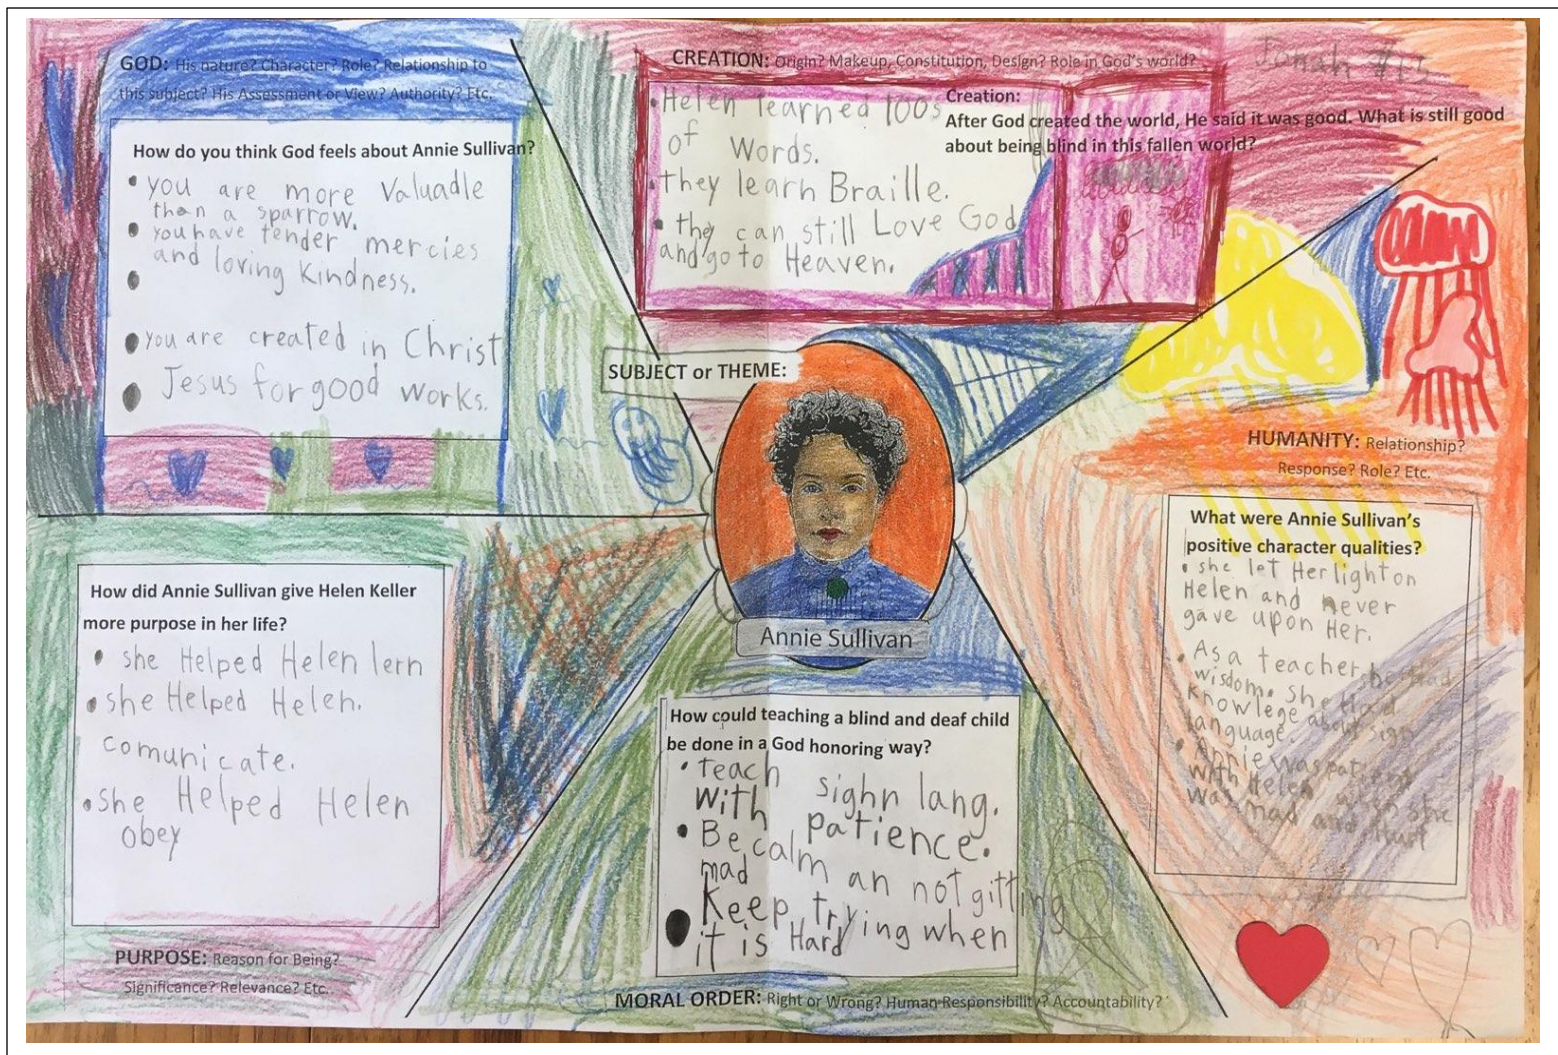 GOD: His nature? Character? Role? Relationship to
this subject? His Assessment or View? Authority? Etc.
How do you think God feels about Annie Sullivan?
• you are more Valuadle
than a sparrow.
• you have tender mercies
and loving Kindness.
• you are created in Christ
Jesus for good works.
CREATION: Origin? Makeup, Constitution, Design? Role in God's world?
Jonah #13
Creation:
After God created the world, He said it was good. What is still good
about being blind in this fallen world?
• Helen learned 100s
of Words.
• they learn Braille.
• they can still Love God
and go to Heaven.
SUBJECT or THEME:
Annie Sullivan
HUMANITY: Relationship?
Response? Role? Etc.
What were Annie Sullivan's
positive character qualities?
• she let Her light on
Helen and never
gave upon Her.
• As a teacher, he had
wisdom. She Had
Knowlege about sign
language.
• Annie was patient
with Helen when she
was mad and Hurt
How did Annie Sullivan give Helen Keller
more purpose in her life?
• she Helped Helen lern
• she Helped Helen.
comunicate.
• she Helped Helen
obey
PURPOSE: Reason for Being?
Significance? Relevance? Etc.
How could teaching a blind and deaf child
be done in a God honoring way?
• teach sighn lang.
with patience.
• Be calm an not gitting
mad
Keep trying when
it is Hard
MORAL ORDER: Right or Wrong? Human Responsibility? Accountability?